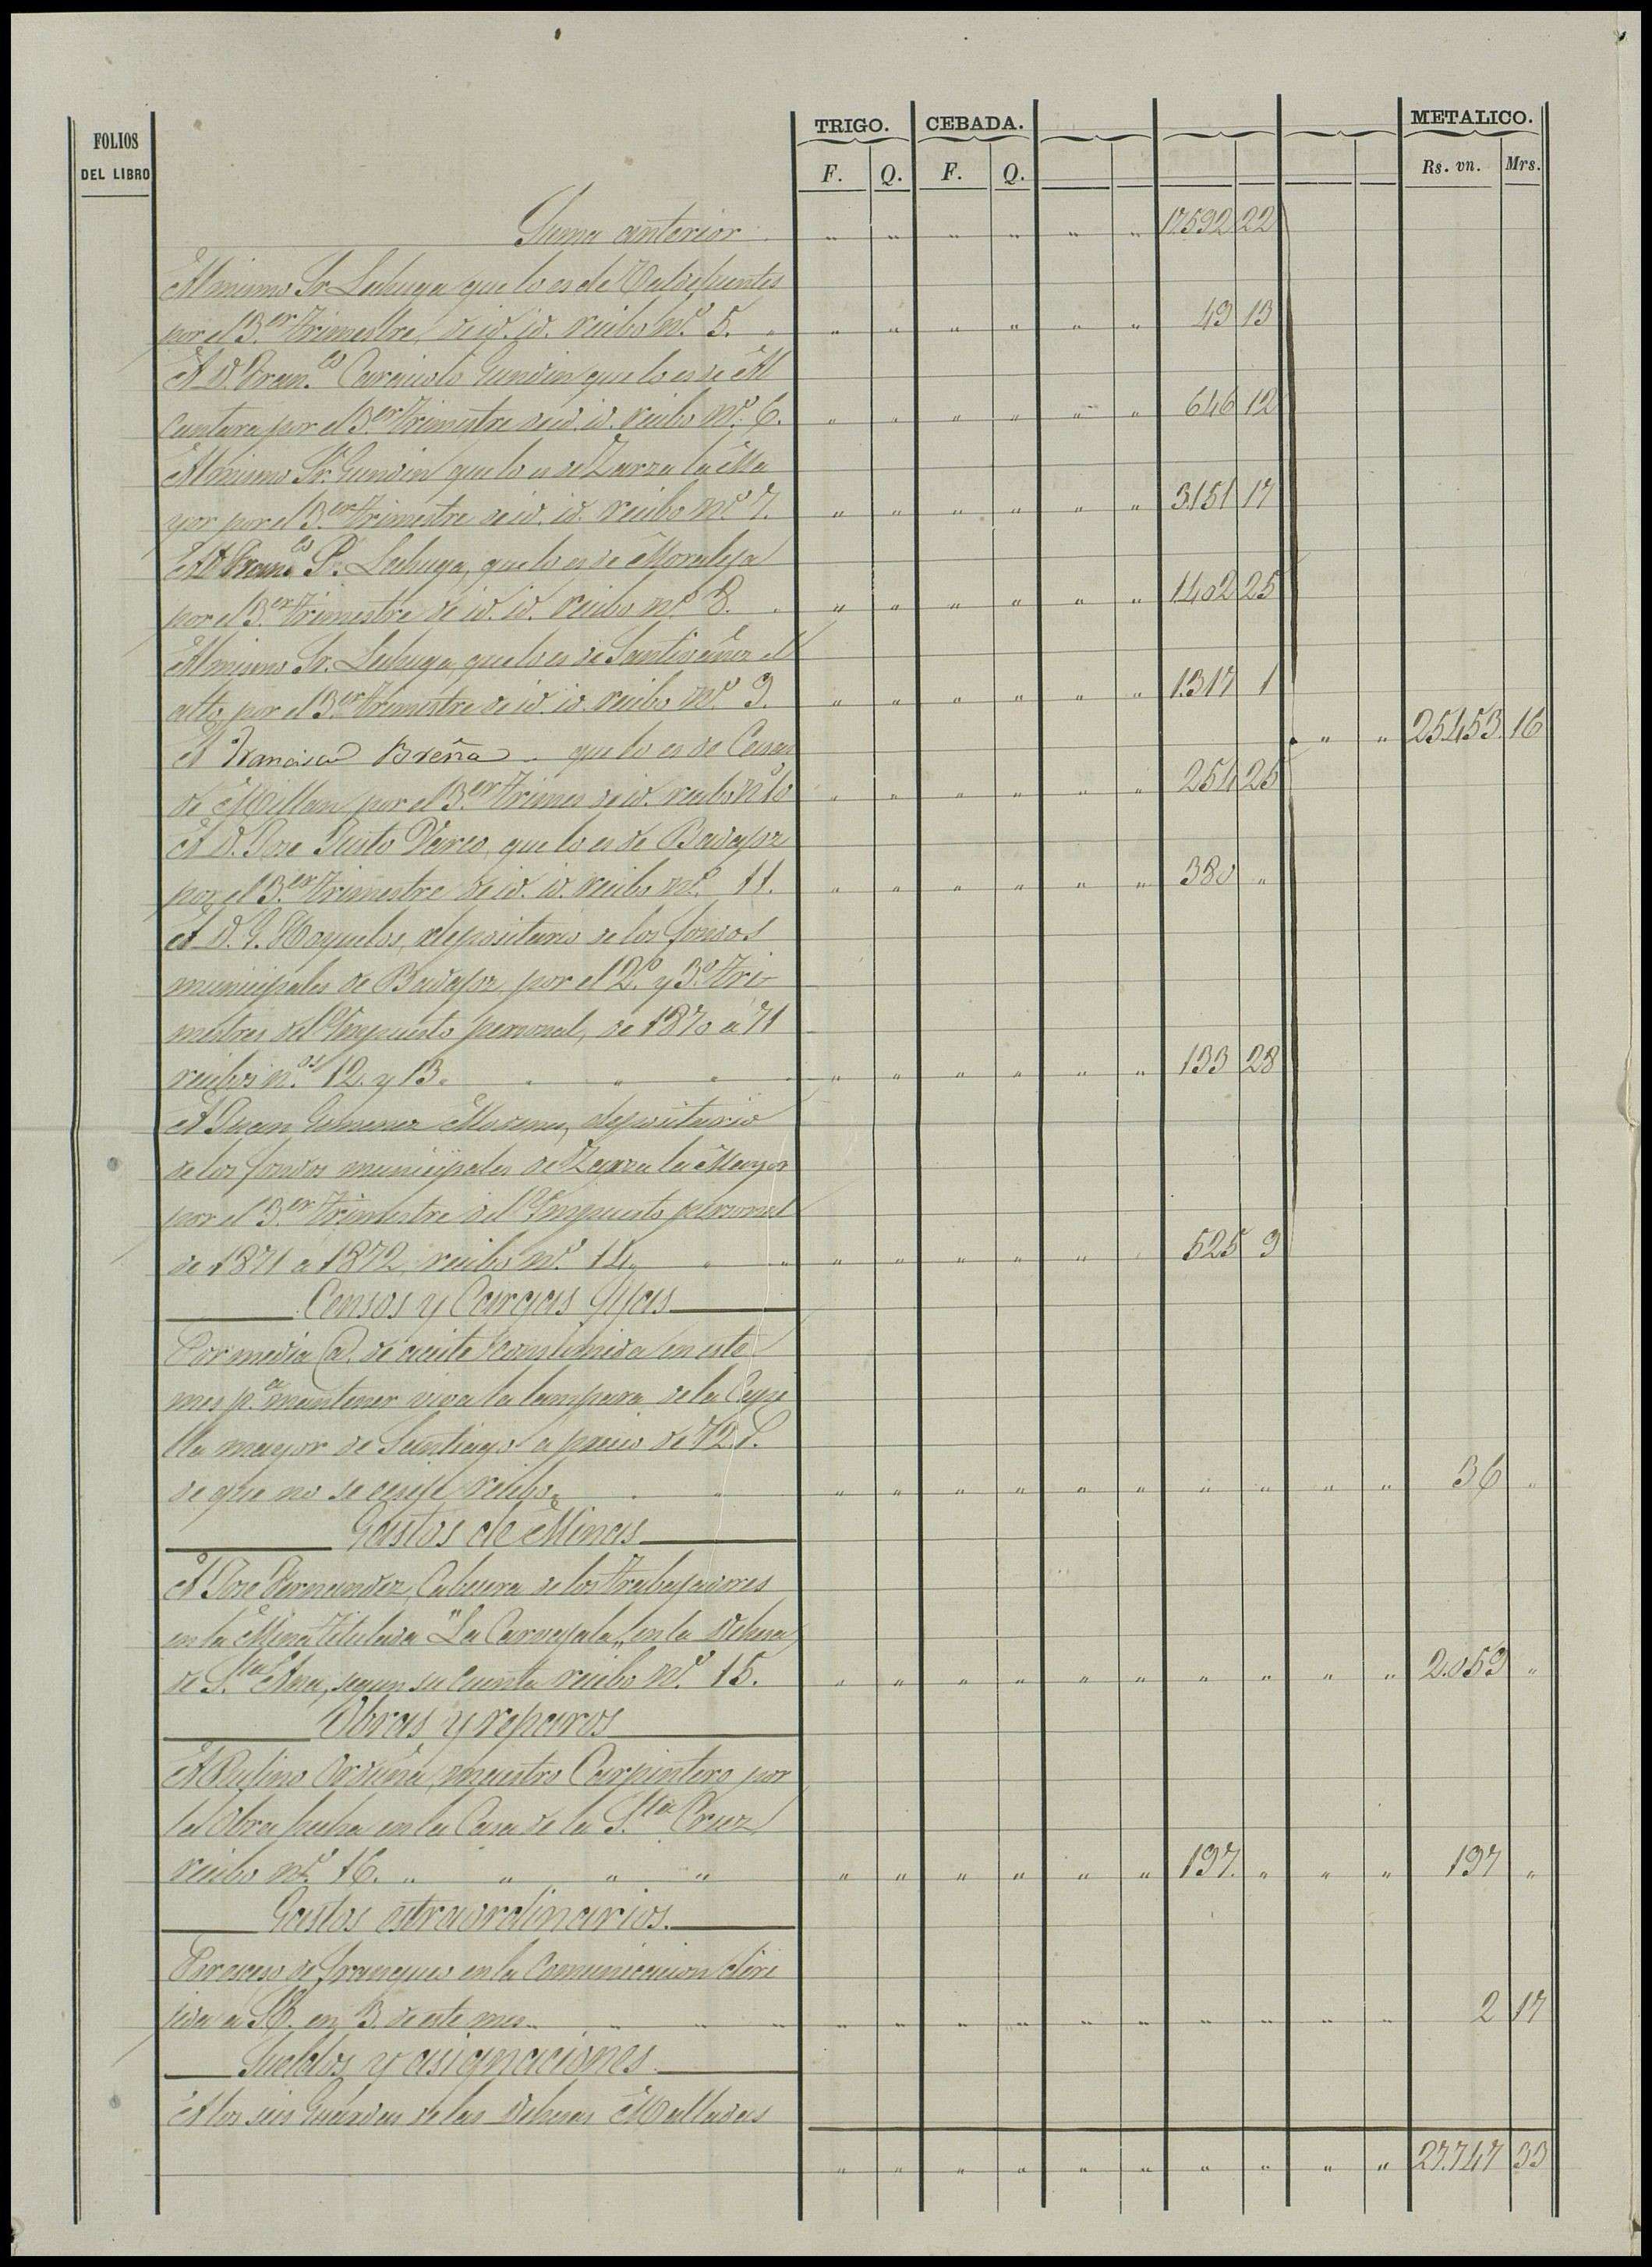 FOLIOS DEL LIBRO
TRIGO. CEBADA. METALICO.
F. Q. F. Q. Rs. vn. Mrs.
Suma anterior " " " " " " 17592 22
Al mismo Sr. Lechuga que lo es de Valdefuentes
por el 3.er Trimestre, de id. id. recibo n.º 5. " " " " " " 49 13
A D. Fran.co Caraciolo Gundin que lo es de Al
cantara por el 3.er Trimestre de id. id. recibo n.º 6. " " " " " " 646 12
Al mismo Sr. Gundin que lo es de Zarza la Ma
yor por el 3.er Trimestre de id. id. recibo n.º 7. " " " " " " 3.151 17
A D. Fran.co P. Lechuga, que lo es de Moraleja
por el 3.er Trimestre de id. id. recibo n.º 8. " " " " " " 1.402 25
Al mismo Sr. Lechuga, que lo es de Santivañez el
alto, por el 3.er Trimestre de id. id. recibo n.º 9. " " " " " " 1.317 1
A Francisco Breña que lo es de Casas " " 25.453. 16
de Millan por el 3.er Trimes. de id. recibo n.º 10 " " " " " " 254 25
A D. José Justo Varco, que lo es de Badajoz
por el 3.er Trimestre de id. id. recibo n.º 11. " " " " " " 380 "
A D. G. Hoyuelos, depositario de los fondos
municipales de Badajoz, por el 2.º y 3.º Tri-
mestres del Impuesto personal, de 1870 á 71
recibos n.os 12. y 13. " " " " " " 133 28
A Juan Gimenez Moreno, depositario
de los fondos municipales de Zarza la Mayor
por el 3.er Trimestre del Impuesto personal
de 1871 a 1872, recibo n.º 14. " " " " " " 525 9
Censos y Cargas fijas
Por media @. de aceite consumida en este
mes p.a mantener viva la lampara de la Cape
lla mayor de Santiago a precio de 72.
de que no se exije recibo. " " " " " " " " " " 36 "
Gastos de Minas
A José Fernandez, Cabecera de los trabajadores
en la Mina titulada "La Carvajala", en la Dehesa
de S.ta Ana, segun su cuenta recibo n.º 15. " " " " " " " " " " 2.059 "
Obras y reparos
A Rufino Orduña, maestro Carpintero por
la Obra hecha en la Casa de la S.ta Cruz
recibo n.º 16. " " " " " " " " " 197. " " " 197 "
Gastos estraordinarios.
Por exceso de franqueo en la Comunicacion diri
jida a S.E. en 3. de este mes. " " " " " " " " " " 2 17
Sueldos y asignaciones
A los seis Guardas de las Dehesas Malladas
" " " " " " " " " " 27.747 33